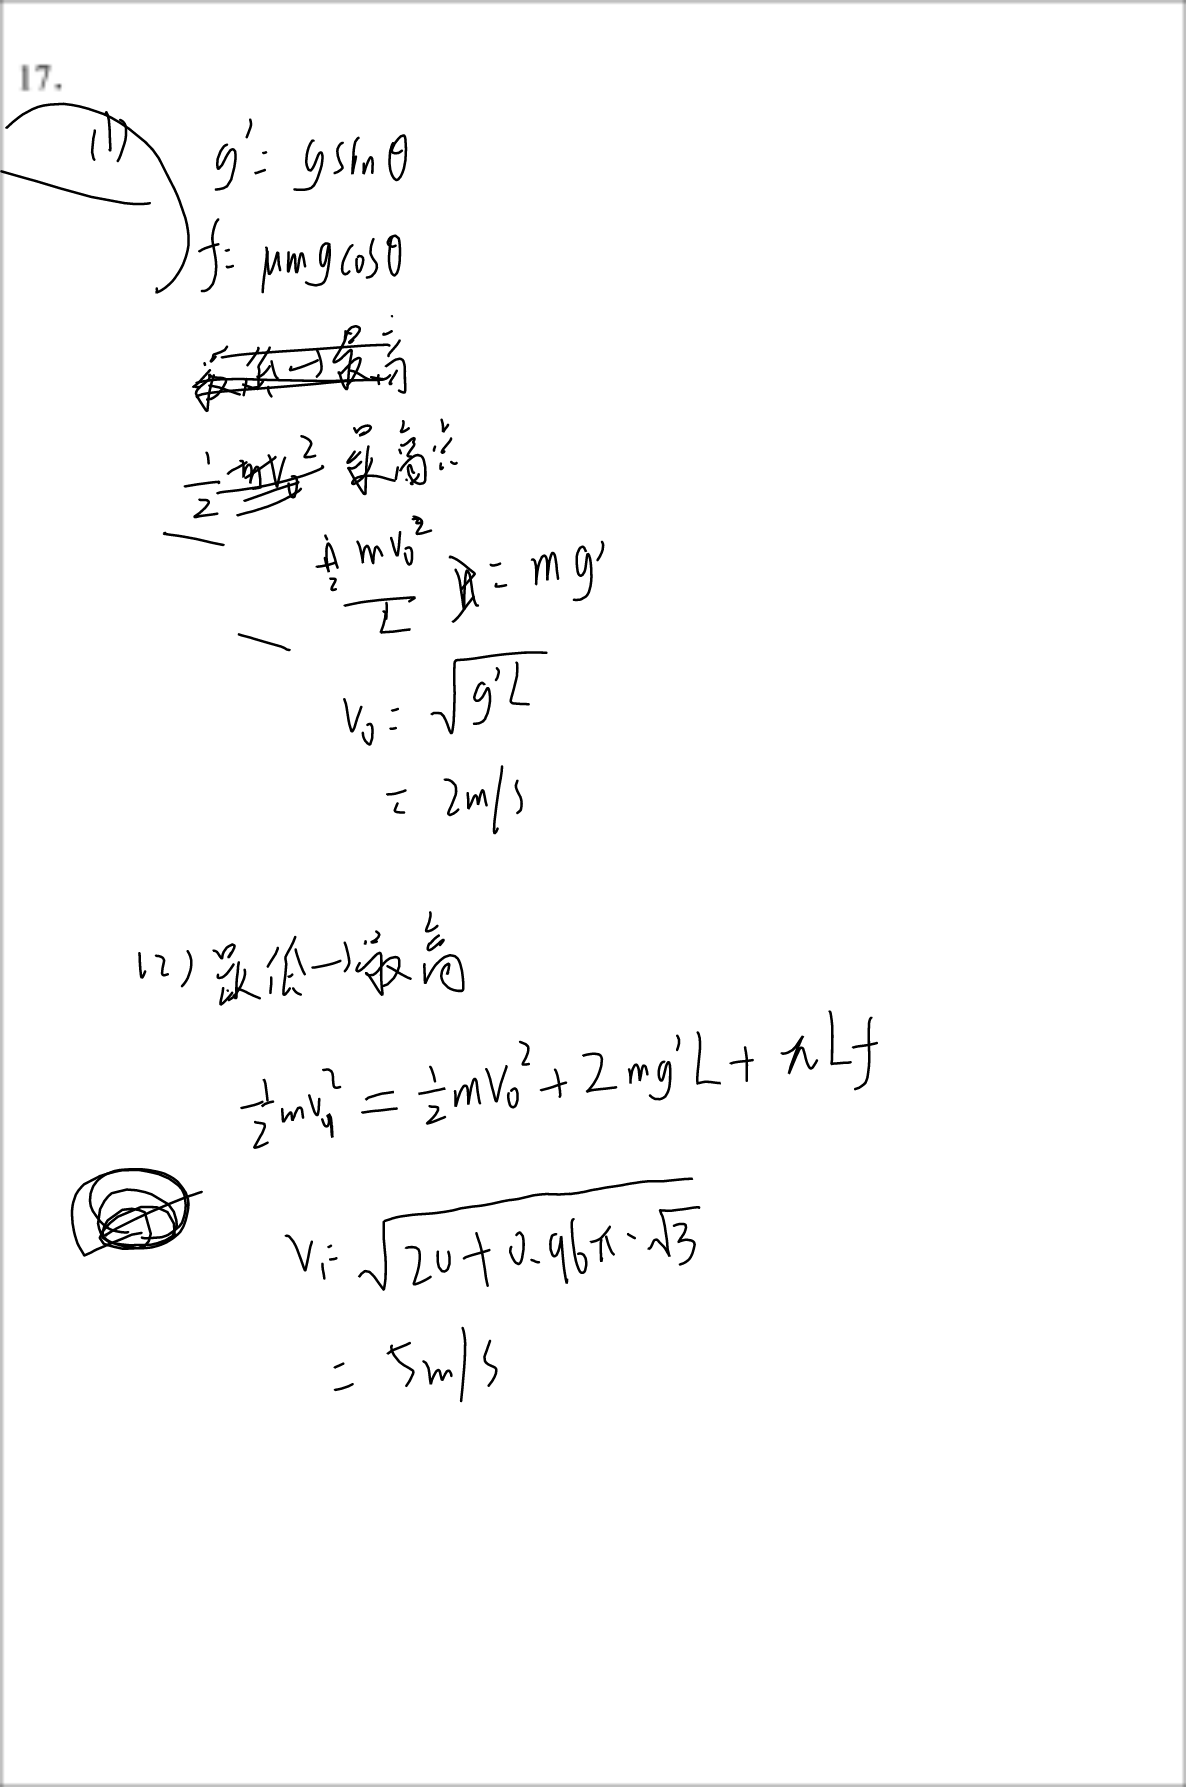 17.
(1) g' = g sin θ
f = μmg cos θ
最低→最高
1/2 mv₀² 最高点
1/2 mv₀² / L = mg'
v₀ = √(g'L)
= 2m/s
(2) 最低→最高
1/2 mv₁² = 1/2 mv₀² + 2mg'L + πLf
v₁ = √(20 + 0.96π·√3)
= 5m/s